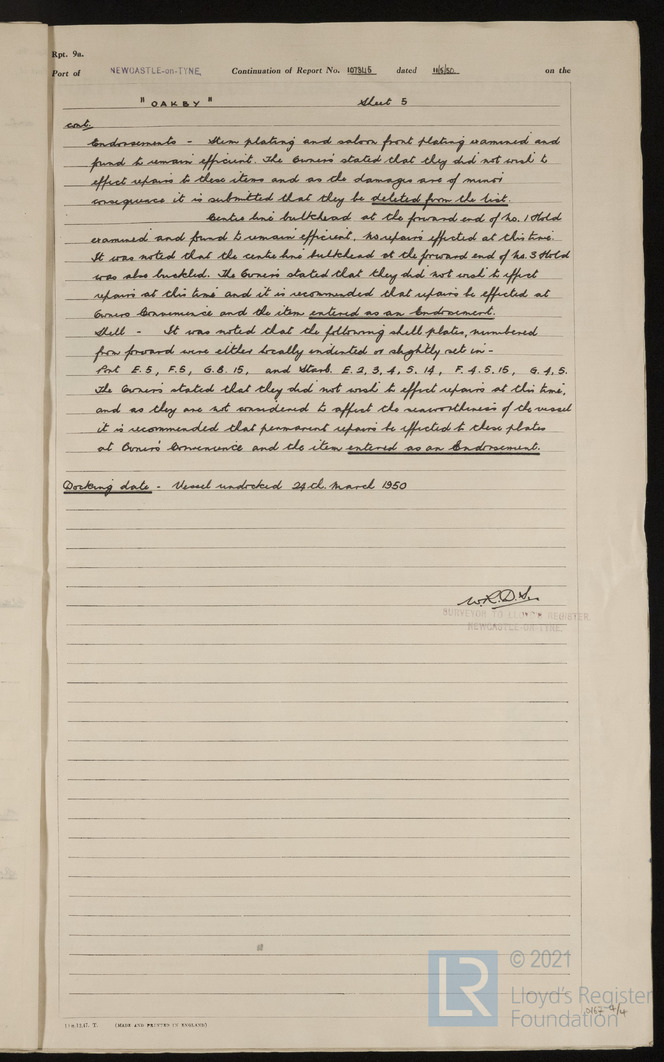 Rpt. 9a.
Port of NEWCASTLE-on-TYNE, Continuation of Report No. 107845 dated 11/5/50. on the
"OAKBY" Sheet 5
cont.
Endorsements - Stem plating and saloon front plating examined and
found to remain efficient. The Owners stated that they did not wish to
effect repairs to these items and as the damages are of minor
consequence it is submitted that they be deleted from the list.
Centre line bulkhead at the forward end of No. 1 Hold
examined and found to remain efficient. No repairs effected at this time.
It was noted that the centre line bulkhead at the forward end of No. 3 Hold
was also buckled. The Owners stated that they did not wish to effect
repairs at this time and it is recommended that repairs be effected at
Owners Convenience and the item entered as an Endorsement.
Shell - It was noted that the following shell plates, numbered
from forward were either locally indented or slightly set in -
Port E.5, F.5, G.8.15, and Starb. E.2,3,4,5,14, F.4.5.15, G.4.5.
The Owners stated that they did not wish to effect repairs at this time,
and as they are not considered to affect the seaworthiness of the vessel
it is recommended that permanent repairs be effected to these plates
at Owners' Convenience and the item entered as an Endorsement.
Docking date - Vessel undocked 24th. March 1950
SURVEYOR TO LLOYD'S REGISTER,
NEWCASTLE-ON-TYNE.
(MADE AND PRINTED IN ENGLAND)
LR
© 2021
Lloyd's Register
Foundation